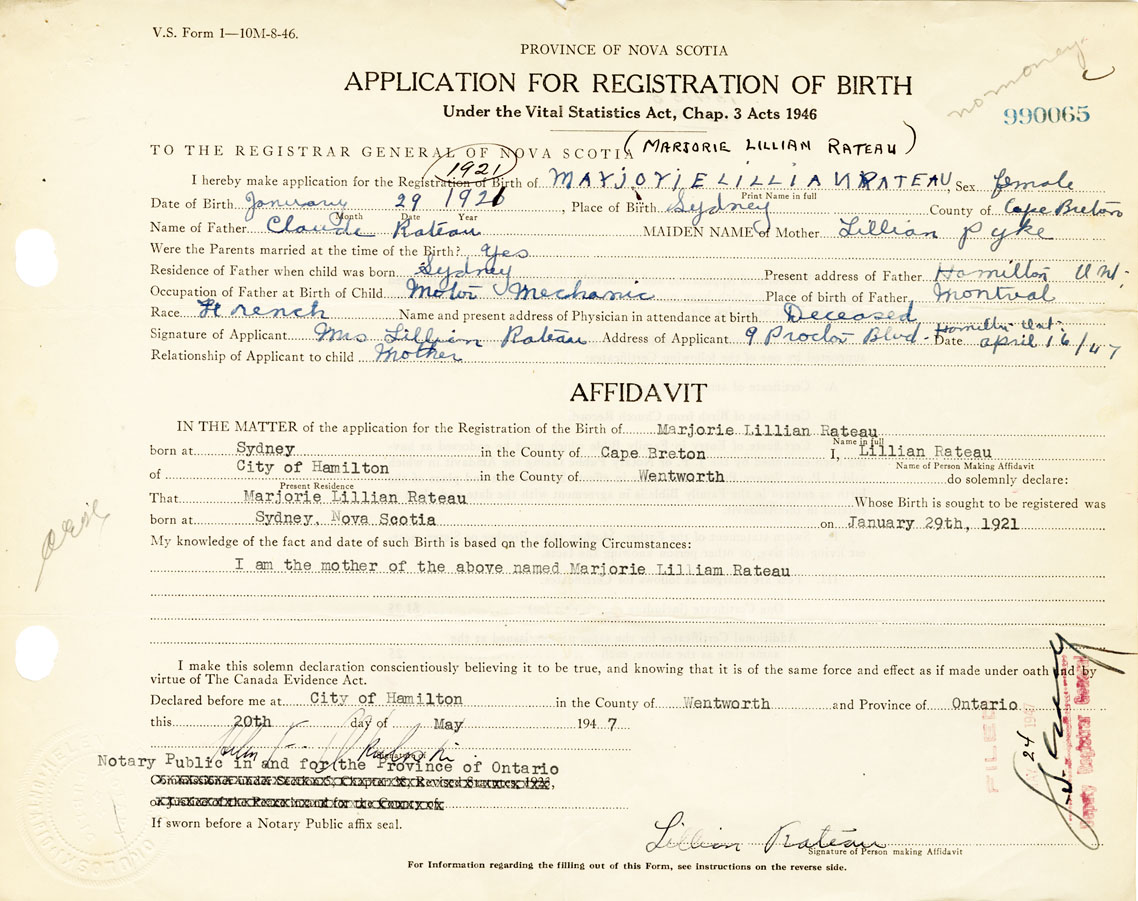 V.S. Form 1—10M-8-46.
PROVINCE OF NOVA SCOTIA
no money
APPLICATION FOR REGISTRATION OF BIRTH
Under the Vital Statistics Act, Chap. 3 Acts 1946
990065
TO THE REGISTRAR GENERAL OF NOVA SCOTIA (MARJORIE LILLIAN RATEAU)
1921
I hereby make application for the Registration of Birth of MARJORIE LILLIAN RATEAU, Sex female
Print Name in full
Date of Birth January 29 1921, Place of Birth Sydney County of Cape Breton
Month Date Year
Name of Father Claude Rateau MAIDEN NAME of Mother Lillian Pyke
Were the Parents married at the time of the Birth? Yes
Residence of Father when child was born Sydney Present address of Father Hamilton Ont.
Occupation of Father at Birth of Child Motor Mechanic Place of birth of Father Montreal
Race French Name and present address of Physician in attendance at birth Deceased
Signature of Applicant Mrs Lillian Rateau Address of Applicant 9 Proctor Blvd. Hamilton Ont. Date april 16/47
Relationship of Applicant to child Mother
AFFIDAVIT
IN THE MATTER of the application for the Registration of the Birth of Marjorie Lillian Rateau
Name in full
born at Sydney in the County of Cape Breton I, Lillian Rateau
Name of Person Making Affidavit
of City of Hamilton in the County of Wentworth do solemnly declare:
Present Residence
That Marjorie Lillian Rateau Whose Birth is sought to be registered was
born at Sydney, Nova Scotia on January 29th, 1921
My knowledge of the fact and date of such Birth is based on the following Circumstances:
I am the mother of the above named Marjorie Lilliam Rateau
I make this solemn declaration conscientiously believing it to be true, and knowing that it is of the same force and effect as if made under oath and by
virtue of The Canada Evidence Act.
Declared before me at City of Hamilton in the County of Wentworth and Province of Ontario
this 20th day of May 1947
Notary Public in and for the Province of Ontario
If sworn before a Notary Public affix seal.
FILED
24 1947
Deputy Registrar General
Lillian Rateau
Signature of Person making Affidavit
For Information regarding the filling out of this Form, see instructions on the reverse side.